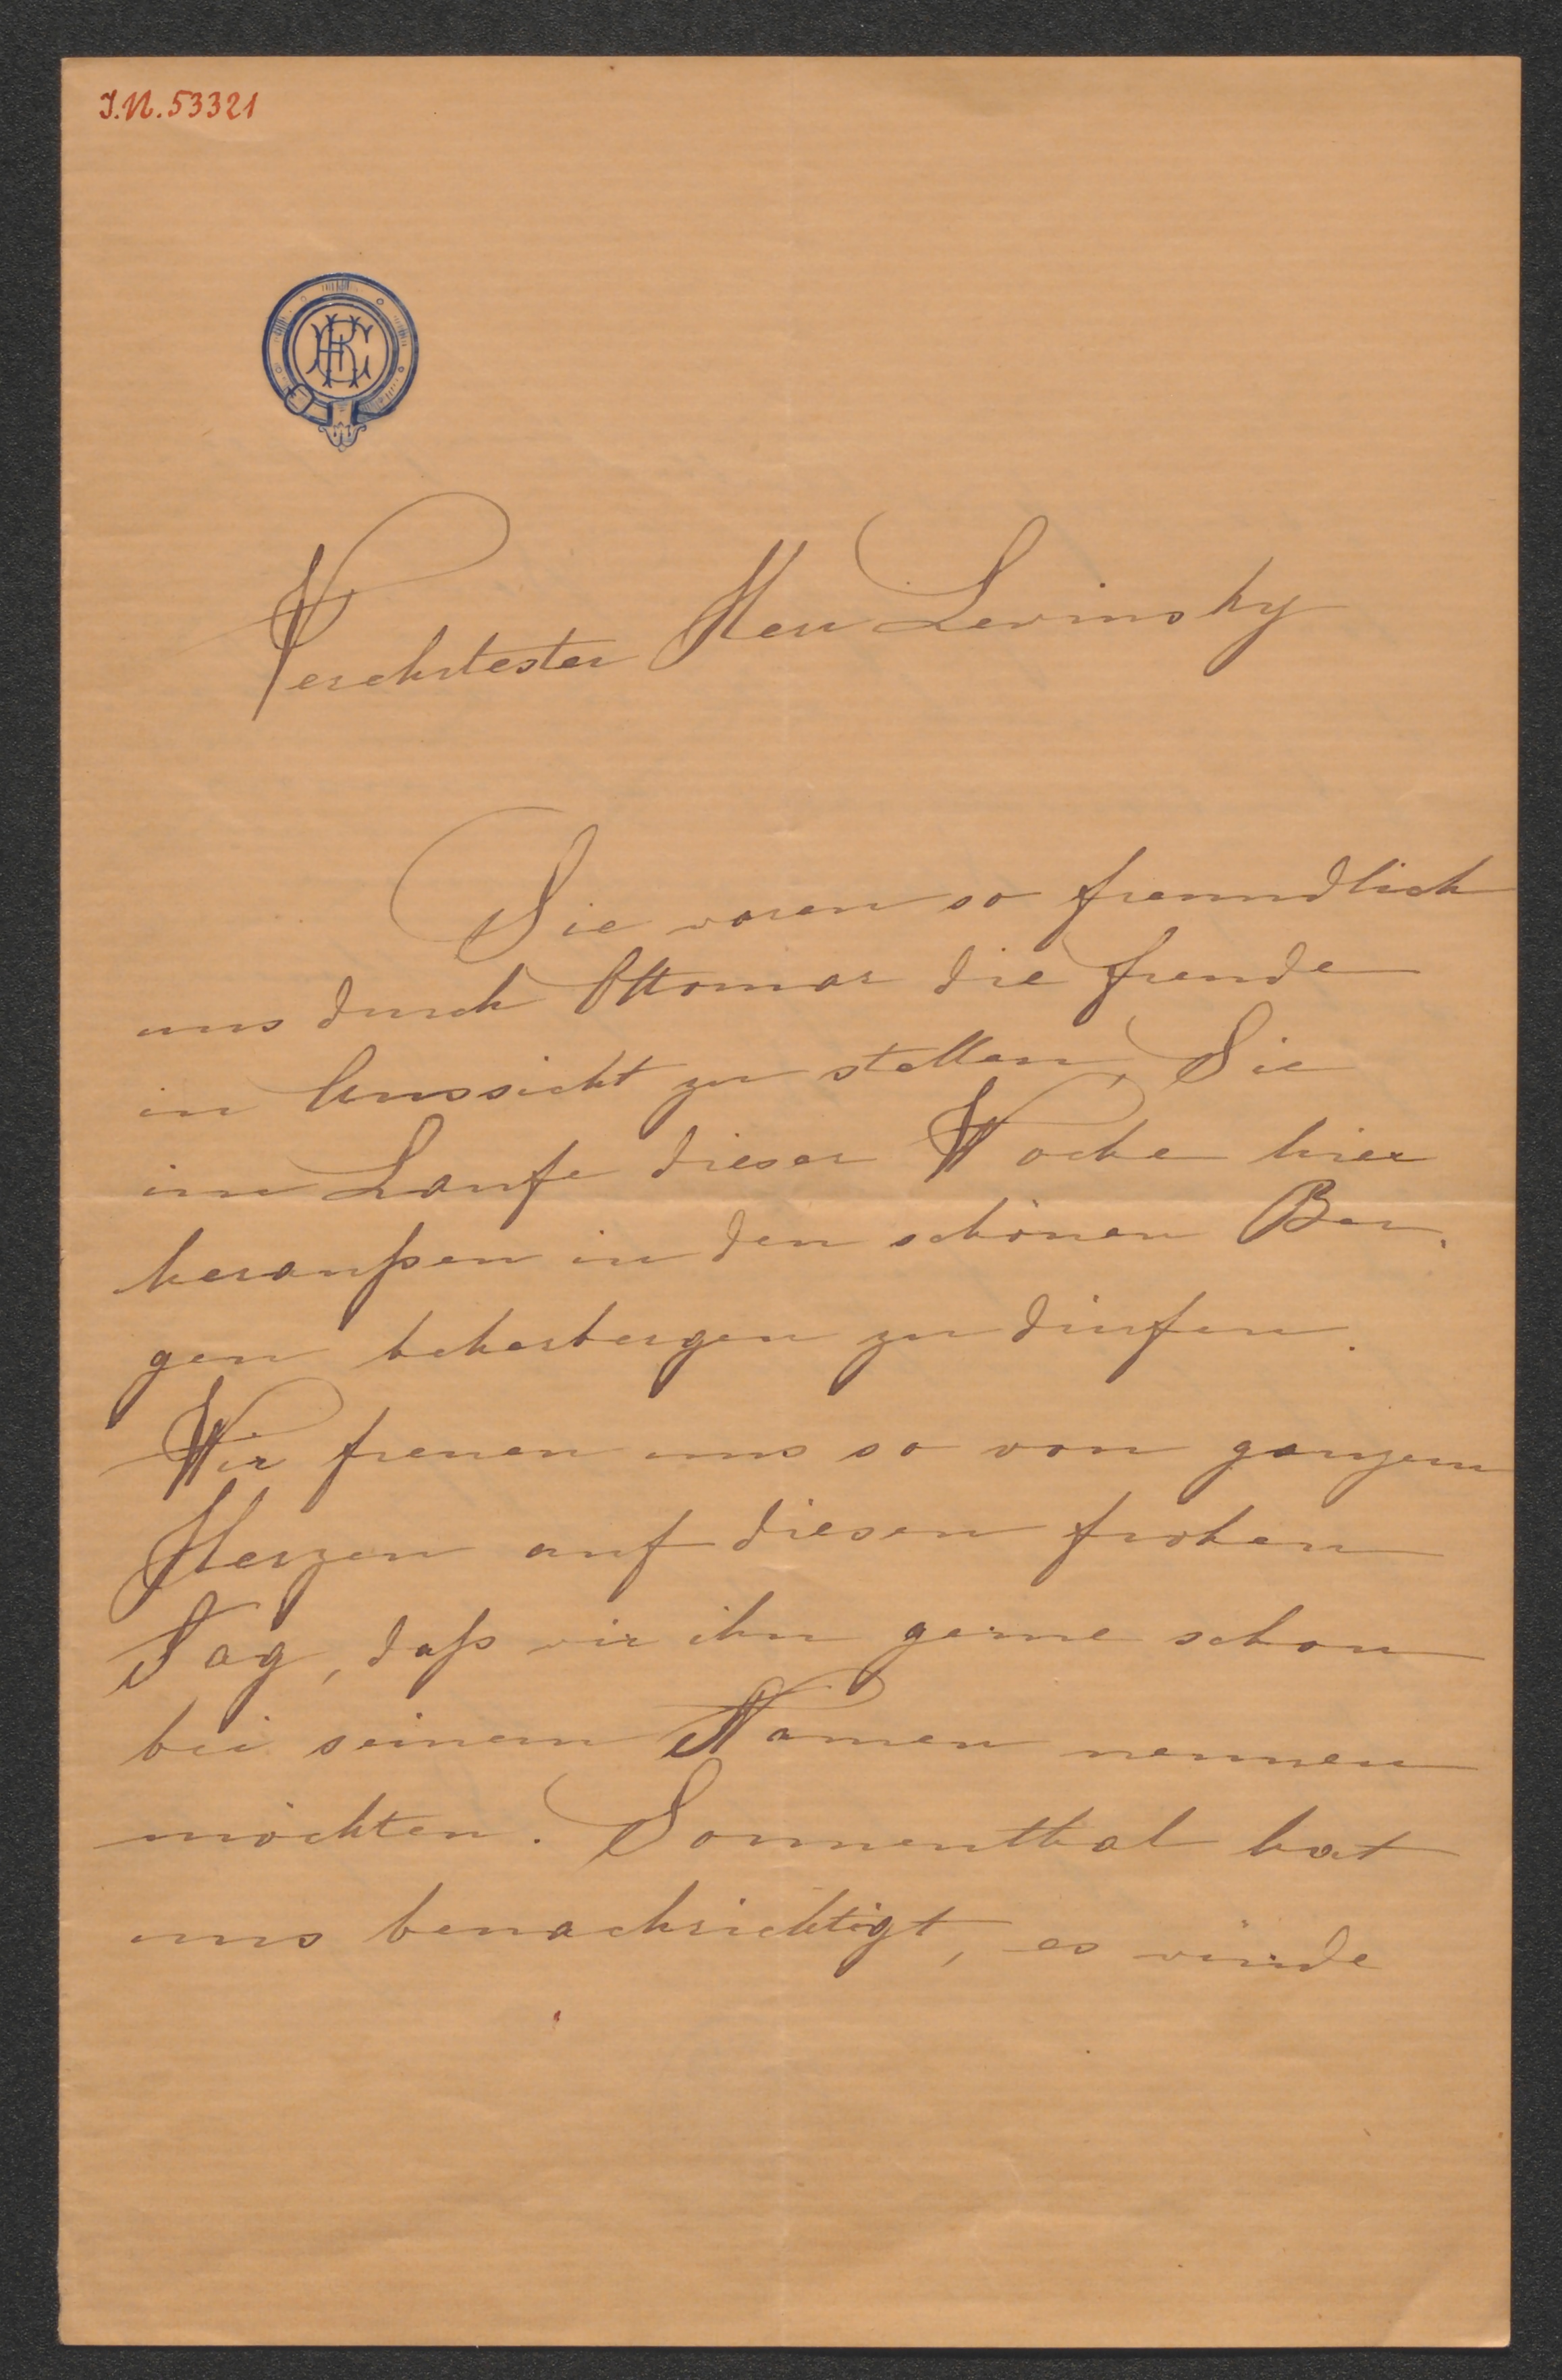 I.N. 53321
Verehrtester Herr Lewinsky
Sie waren so freundlich
uns durch Ottomar die Freude
in Aussicht zu stellen, Sie
im Laufe dieser Woche hier
heraußen in den schönen Ber-
gen beherbergen zu dürfen.
Wir freuen uns so von ganzem
Herzen auf diesen frohen
Tag, daß wir ihn gerne schon
bei seinem Namen nennen
möchten. Sonnenthal hat
uns benachrichtigt, es würde